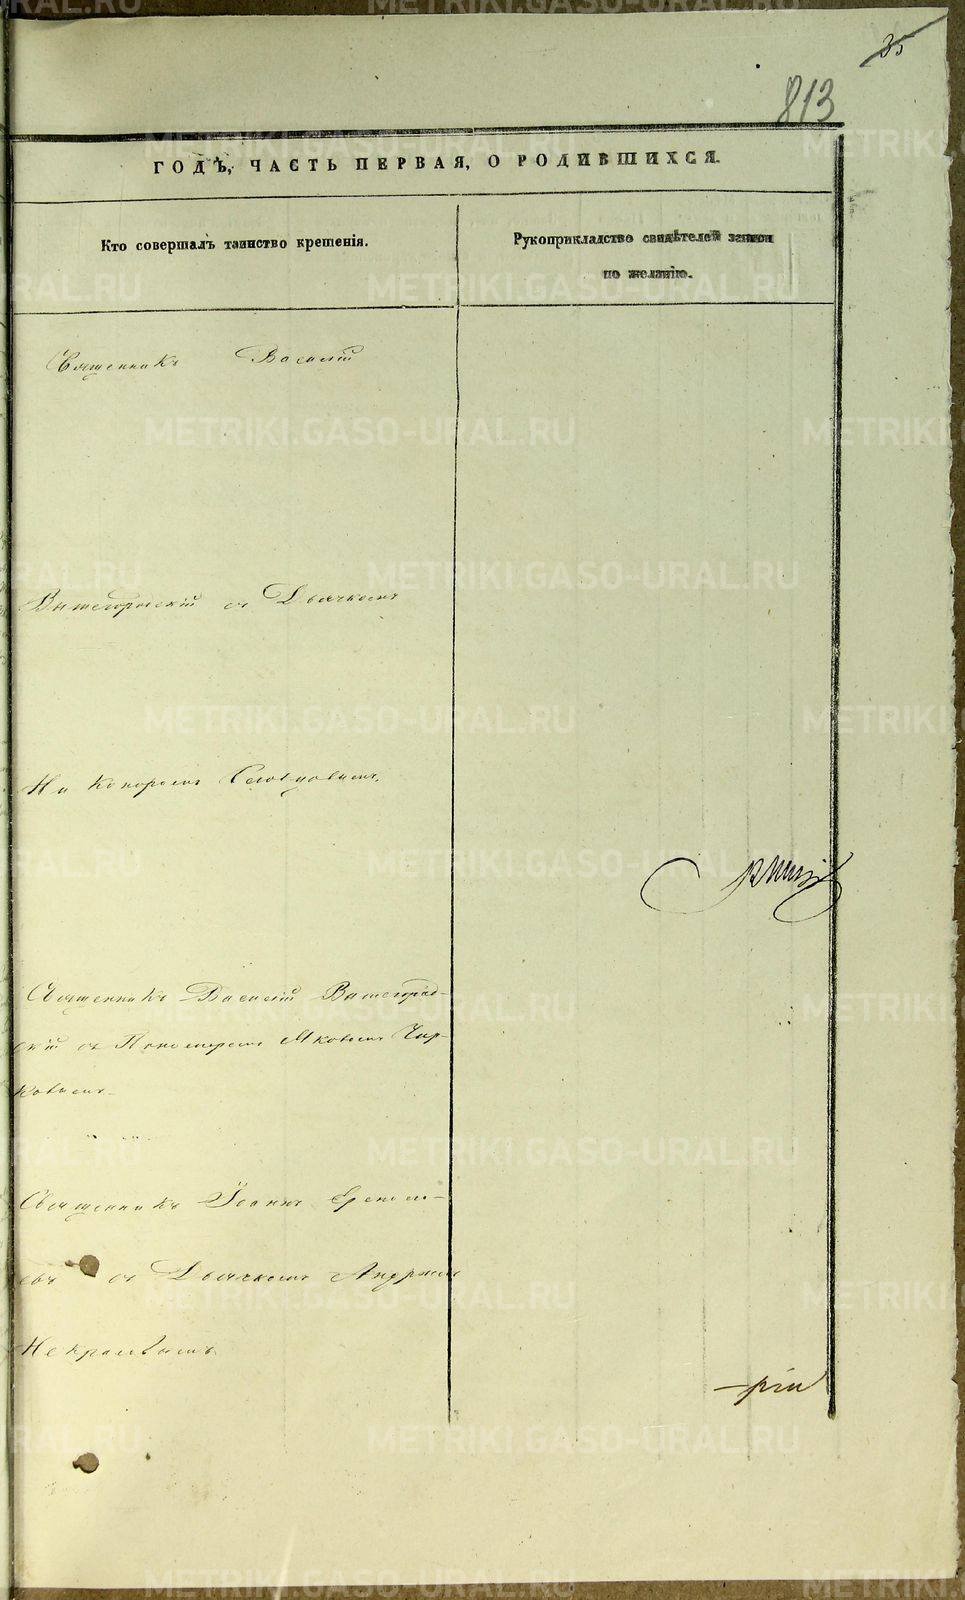 35
813
ГОДЪ, ЧАСТЬ ПЕРВАЯ, О РОДИВШИХСЯ.
Кто совершалъ таинство крещенія.
Рукоприкладство свидѣтелей записи
по желанію.
Священникъ Василій
Вышегородскій съ Дьячкомъ
Никаноромъ Словцовымъ.
Священникъ Василій Вышегород-
скій съ Пономаремъ Яковомъ Чир-
ковымъ
Священникъ Іоаннъ
съ Дьячкомъ Андреемъ
Некрасовымъ
METRIKI.GASO-URAL.RU